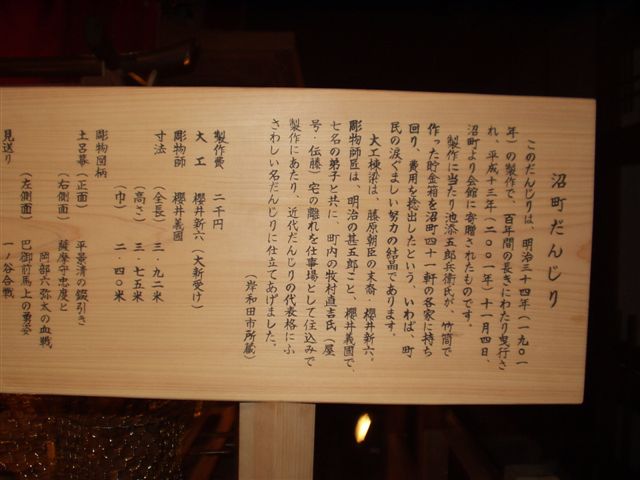 沼町だんじり
このだんじりは、明治三十四年（一九〇一
年）の製作で、百年間の長きにわたり曳行さ
れ、平成十三年（二〇〇一年）十一月四日、
沼町より会館に寄贈されたものです。
製作に当たり池添五郎兵衛氏が、竹筒で
作った貯金箱を沼町四十一軒の各家に持ち
回り、費用を捻出したという、いわば、町
民の涙ぐましい努力の結晶であります。
大工棟梁は、藤原朝臣の末裔　櫻井新六。
彫物師匠は、明治の甚五郎こと、櫻井義國で、
七名の弟子と共に、町内の牧村直吉氏（屋
号・伝藤）宅の離れを仕事場として住込みで
製作にあたり、近代だんじりの代表格にふ
さわしい名だんじりに仕立てあげました。
（岸和田市所蔵）
製作費　二千円
大工　櫻井新六（大新受け）
彫物師　櫻井義國
寸法　（全長）三・九二米
（高さ）三・七五米
（巾）二・四〇米
彫物図柄
土呂幕（正面）平景清の錣引き
（右側面）薩摩守忠度と
岡部六弥太の血戦
（左側面）巴御前馬上の勇姿
見送り　一ノ谷合戦